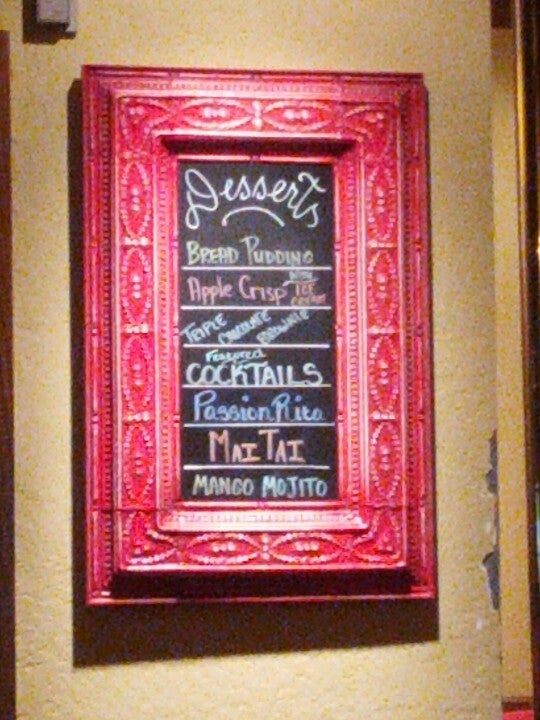 Desserts
BREAD PUDDING
Apple Crisp WITH ICE CREAM
TRIPLE CHOCOLATE BROWNIE
Featured
COCKTAILS
Passion Rita
MAI TAI
MANGO MOJITO